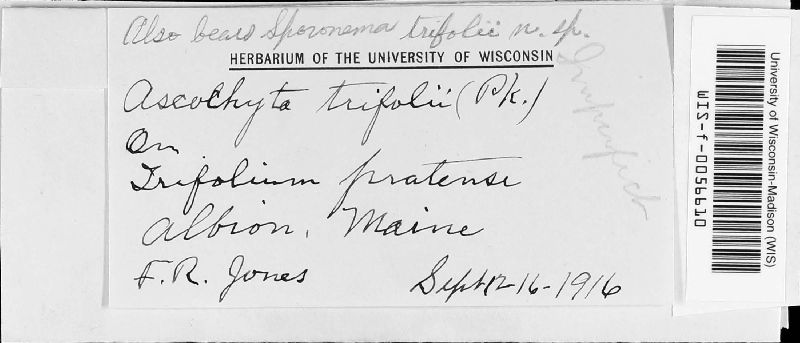 Also bears Sporonema trifolii n. sp.
Imperfect
HERBARIUM OF THE UNIVERSITY OF WISCONSIN
Ascochyta trifolii (Pk.)
On
Trifolium pratense
Albion, Maine
F. R. Jones Sept 12-16-1916
University of Wisconsin-Madison (WIS)